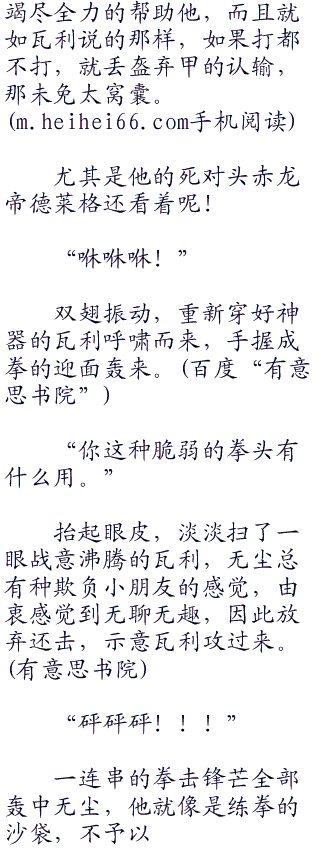 竭尽全力的帮助他，而且就
如瓦利说的那样，如果打都
不打，就丢盔弃甲的认输，
那未免太窝囊。
(m.heihei66.com手机阅读)
尤其是他的死对头赤龙
帝德莱格还看着呢！
“咻咻咻！”
双翅振动，重新穿好神
器的瓦利呼啸而来，手握成
拳的迎面轰来。(百度“有意
思书院”)
“你这种脆弱的拳头有
什么用。”
抬起眼皮，淡淡扫了一
眼战意沸腾的瓦利，无尘总
有种欺负小朋友的感觉，由
衷感觉到无聊无趣，因此放
弃还击，示意瓦利攻过来。
(有意思书院)
“砰砰砰！！！”
一连串的拳击锋芒全部
轰中无尘，他就像是练拳的
沙袋，不予以